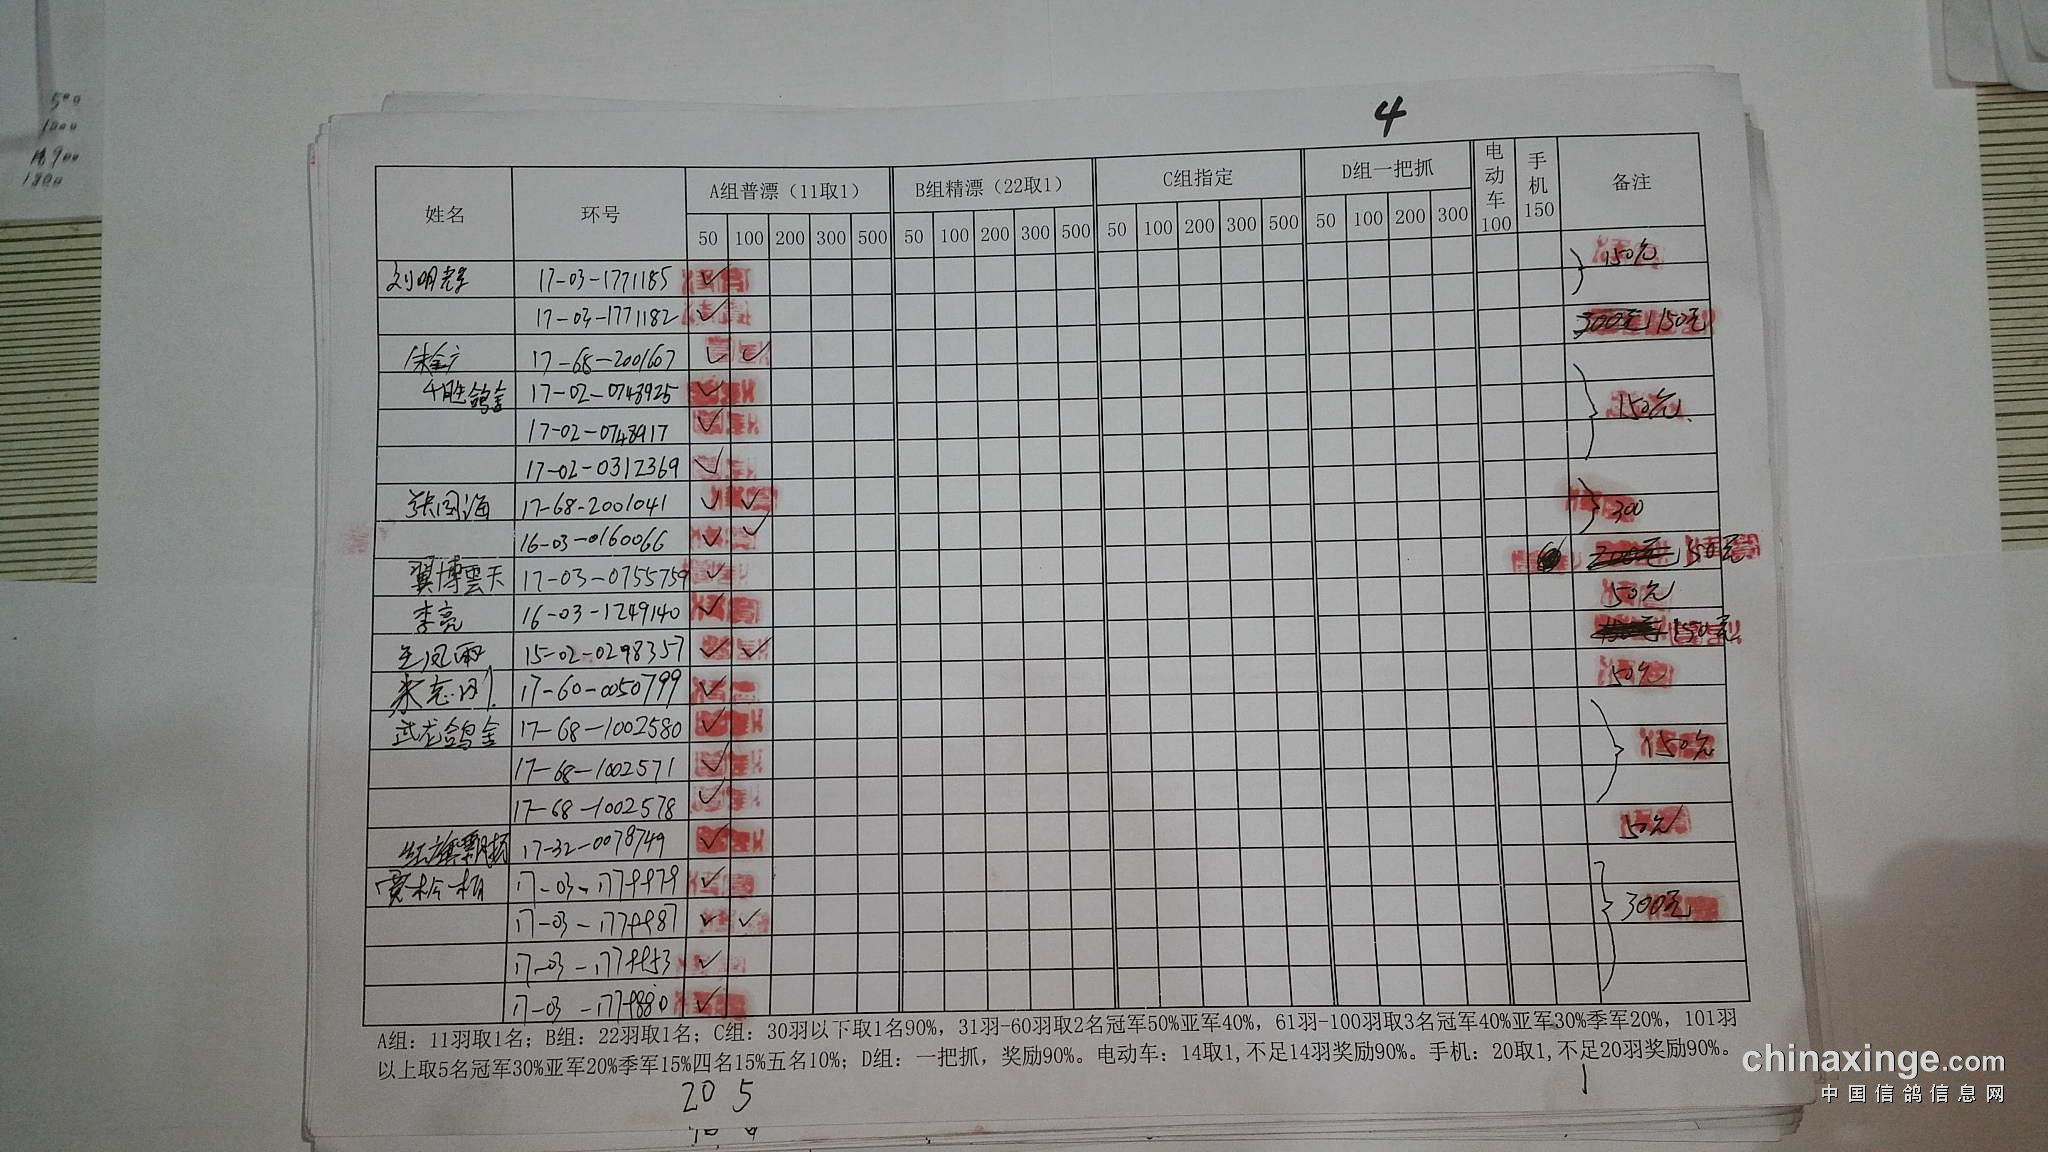 500
1000
1800
4
姓名 环号 A组普漂（11取1） B组精漂（22取1） C组指定 D组一把抓 电动车100 手机150 备注
50 100 200 300 500 50 100 200 300 500 50 100 200 300 500 50 100 200 300
17-03-1771185 ✓ 150元
17-03-1771182 ✓
17-68-2001667 ✓ ✓ 300元 150元
千胜鸽舍 17-02-0748925 ✓
17-02-0748917 ✓ 150元
17-02-0312369 ✓
张国海 17-68-2001041 ✓ ✓ 300
16-03-0160066 ✓ ✓
翼博雲天 17-03-0755759 ✓ 150元
李亮 16-03-1249140 ✓ 50元
王凤雨 15-02-0298357 ✓ ✓ 150元
17-60-0050799 ✓ 50元
武龙鸽舍 17-68-1002580 ✓
17-68-1002571 ✓ 150元
17-68-1002578 ✓
红旗飘扬 17-32-0078749 ✓ 50元
17-03- ✓
17-03- ✓ ✓ 300元
17-03- ✓
17-03- ✓
A组：11羽取1名；B组：22羽取1名；C组：30羽以下取1名90%，31羽-60羽取2名冠军50%亚军40%，61羽-100羽取3名冠军40%亚军30%季军20%，101羽
以上取5名冠军30%亚军20%季军15%四名15%五名10%；D组：一把抓，奖励90%。电动车：14取1,不足14羽奖励90%。手机：20取1,不足20羽奖励90%。
20 5 1
chinaxinge.com
中国信鸽信息网